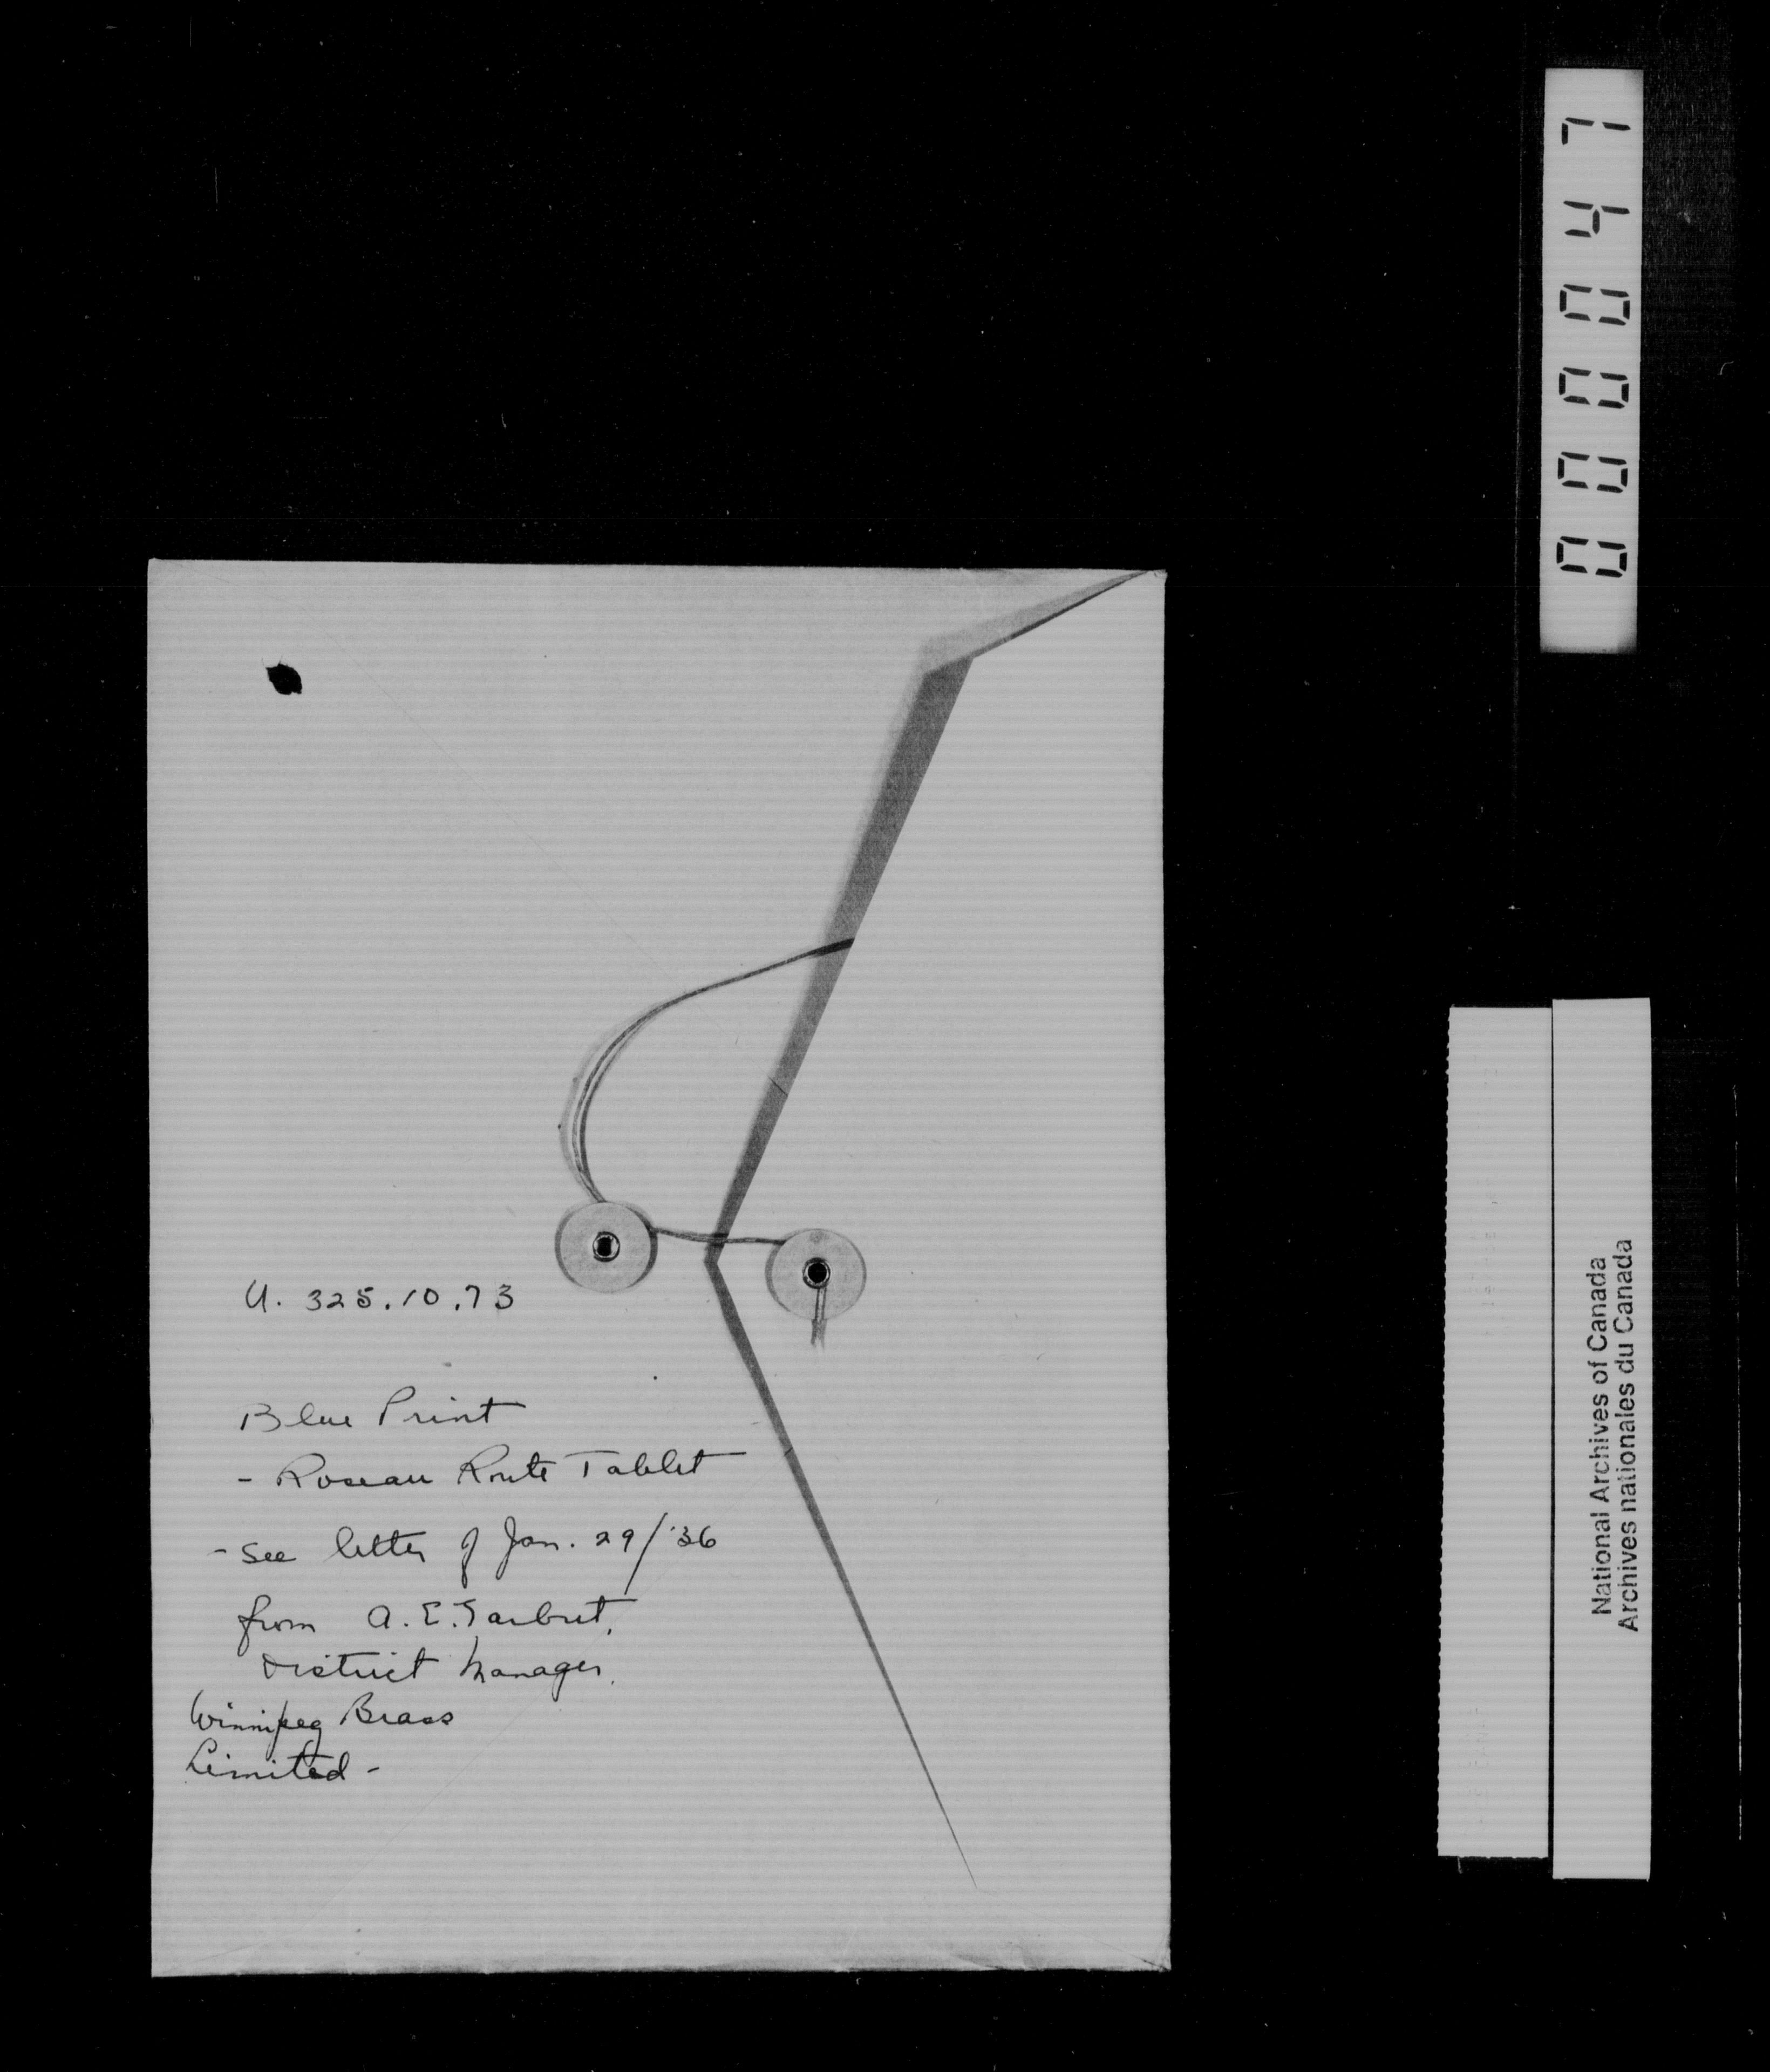 U. 325.10.73
Blue Print
- Roseau Route Tablet
- see letter of Jan. 29/'36
from A. E.
District Manager.
Winnipeg Brass
Limited -
000047
National Archives of Canada
Archives nationales du Canada